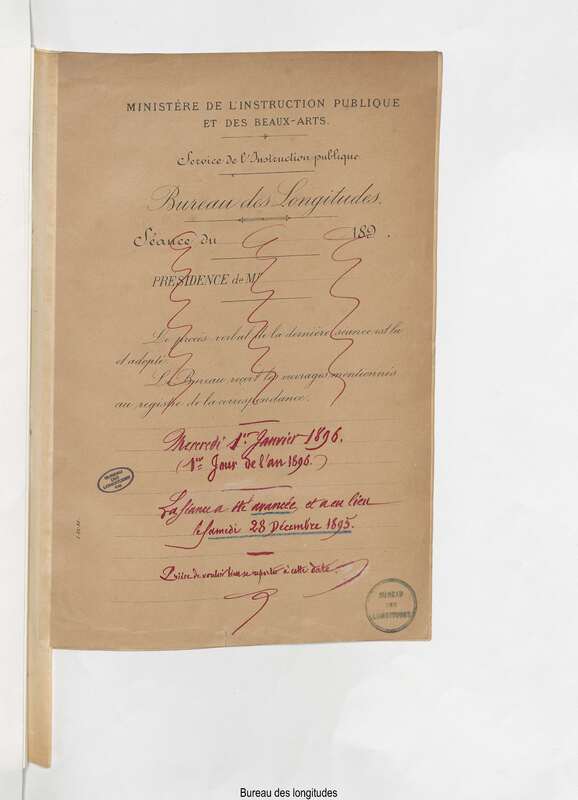 MINISTÈRE DE L'INSTRUCTION PUBLIQUE
ET DES BEAUX-ARTS.
Service de l'Instruction publique
Bureau des Longitudes.
Séance du 189 .
PRÉSIDENCE de Mr
Le procès verbal de la dernière séance est lu
et adopté.
Le Bureau reçoit les ouvrages mentionnés
au registre de la correspondance.
Mercredi 1er Janvier 1896.
(1er Jour de l'an 1896.)
La séance a été avancée et a eu lieu
le Samedi 28 Décembre 1895.
Prière de vouloir bien se reporter à cette date.
BUREAU
DES
LONGITUDES
BUREAU
DES
LONGITUDES
Bureau des longitudes